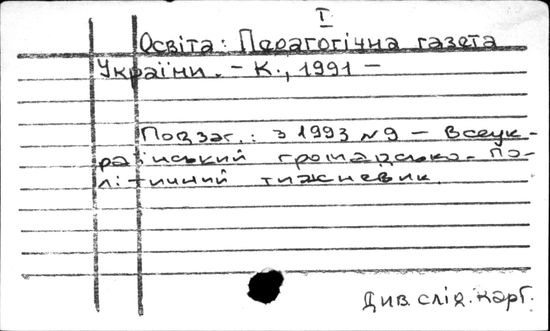 I
Освіта: Педагогічна газета
України. – К., 1991 –
Подзаг.: з 1993 №9 – Всеук-
раїнський громадсько-по-
літичний тижневик.
Див. слід. карт.